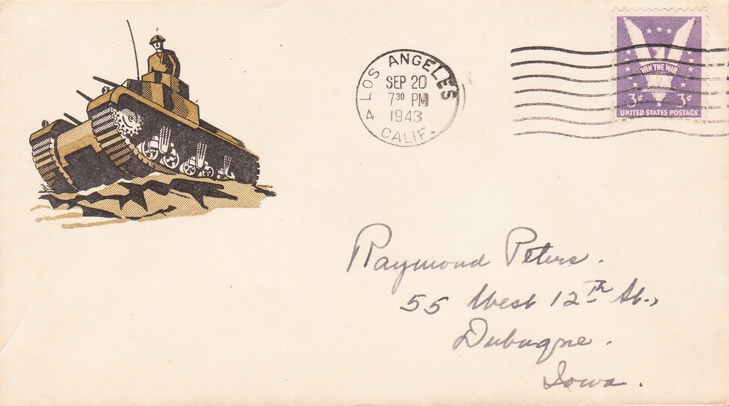 LOS ANGELES
4
SEP 20
7 30 PM
1943
CALIF.
WIN THE WAR
3¢ 3¢
UNITED STATES POSTAGE
Raymond Peters.
55 West 12th St.,
Dubuque.
Iowa.